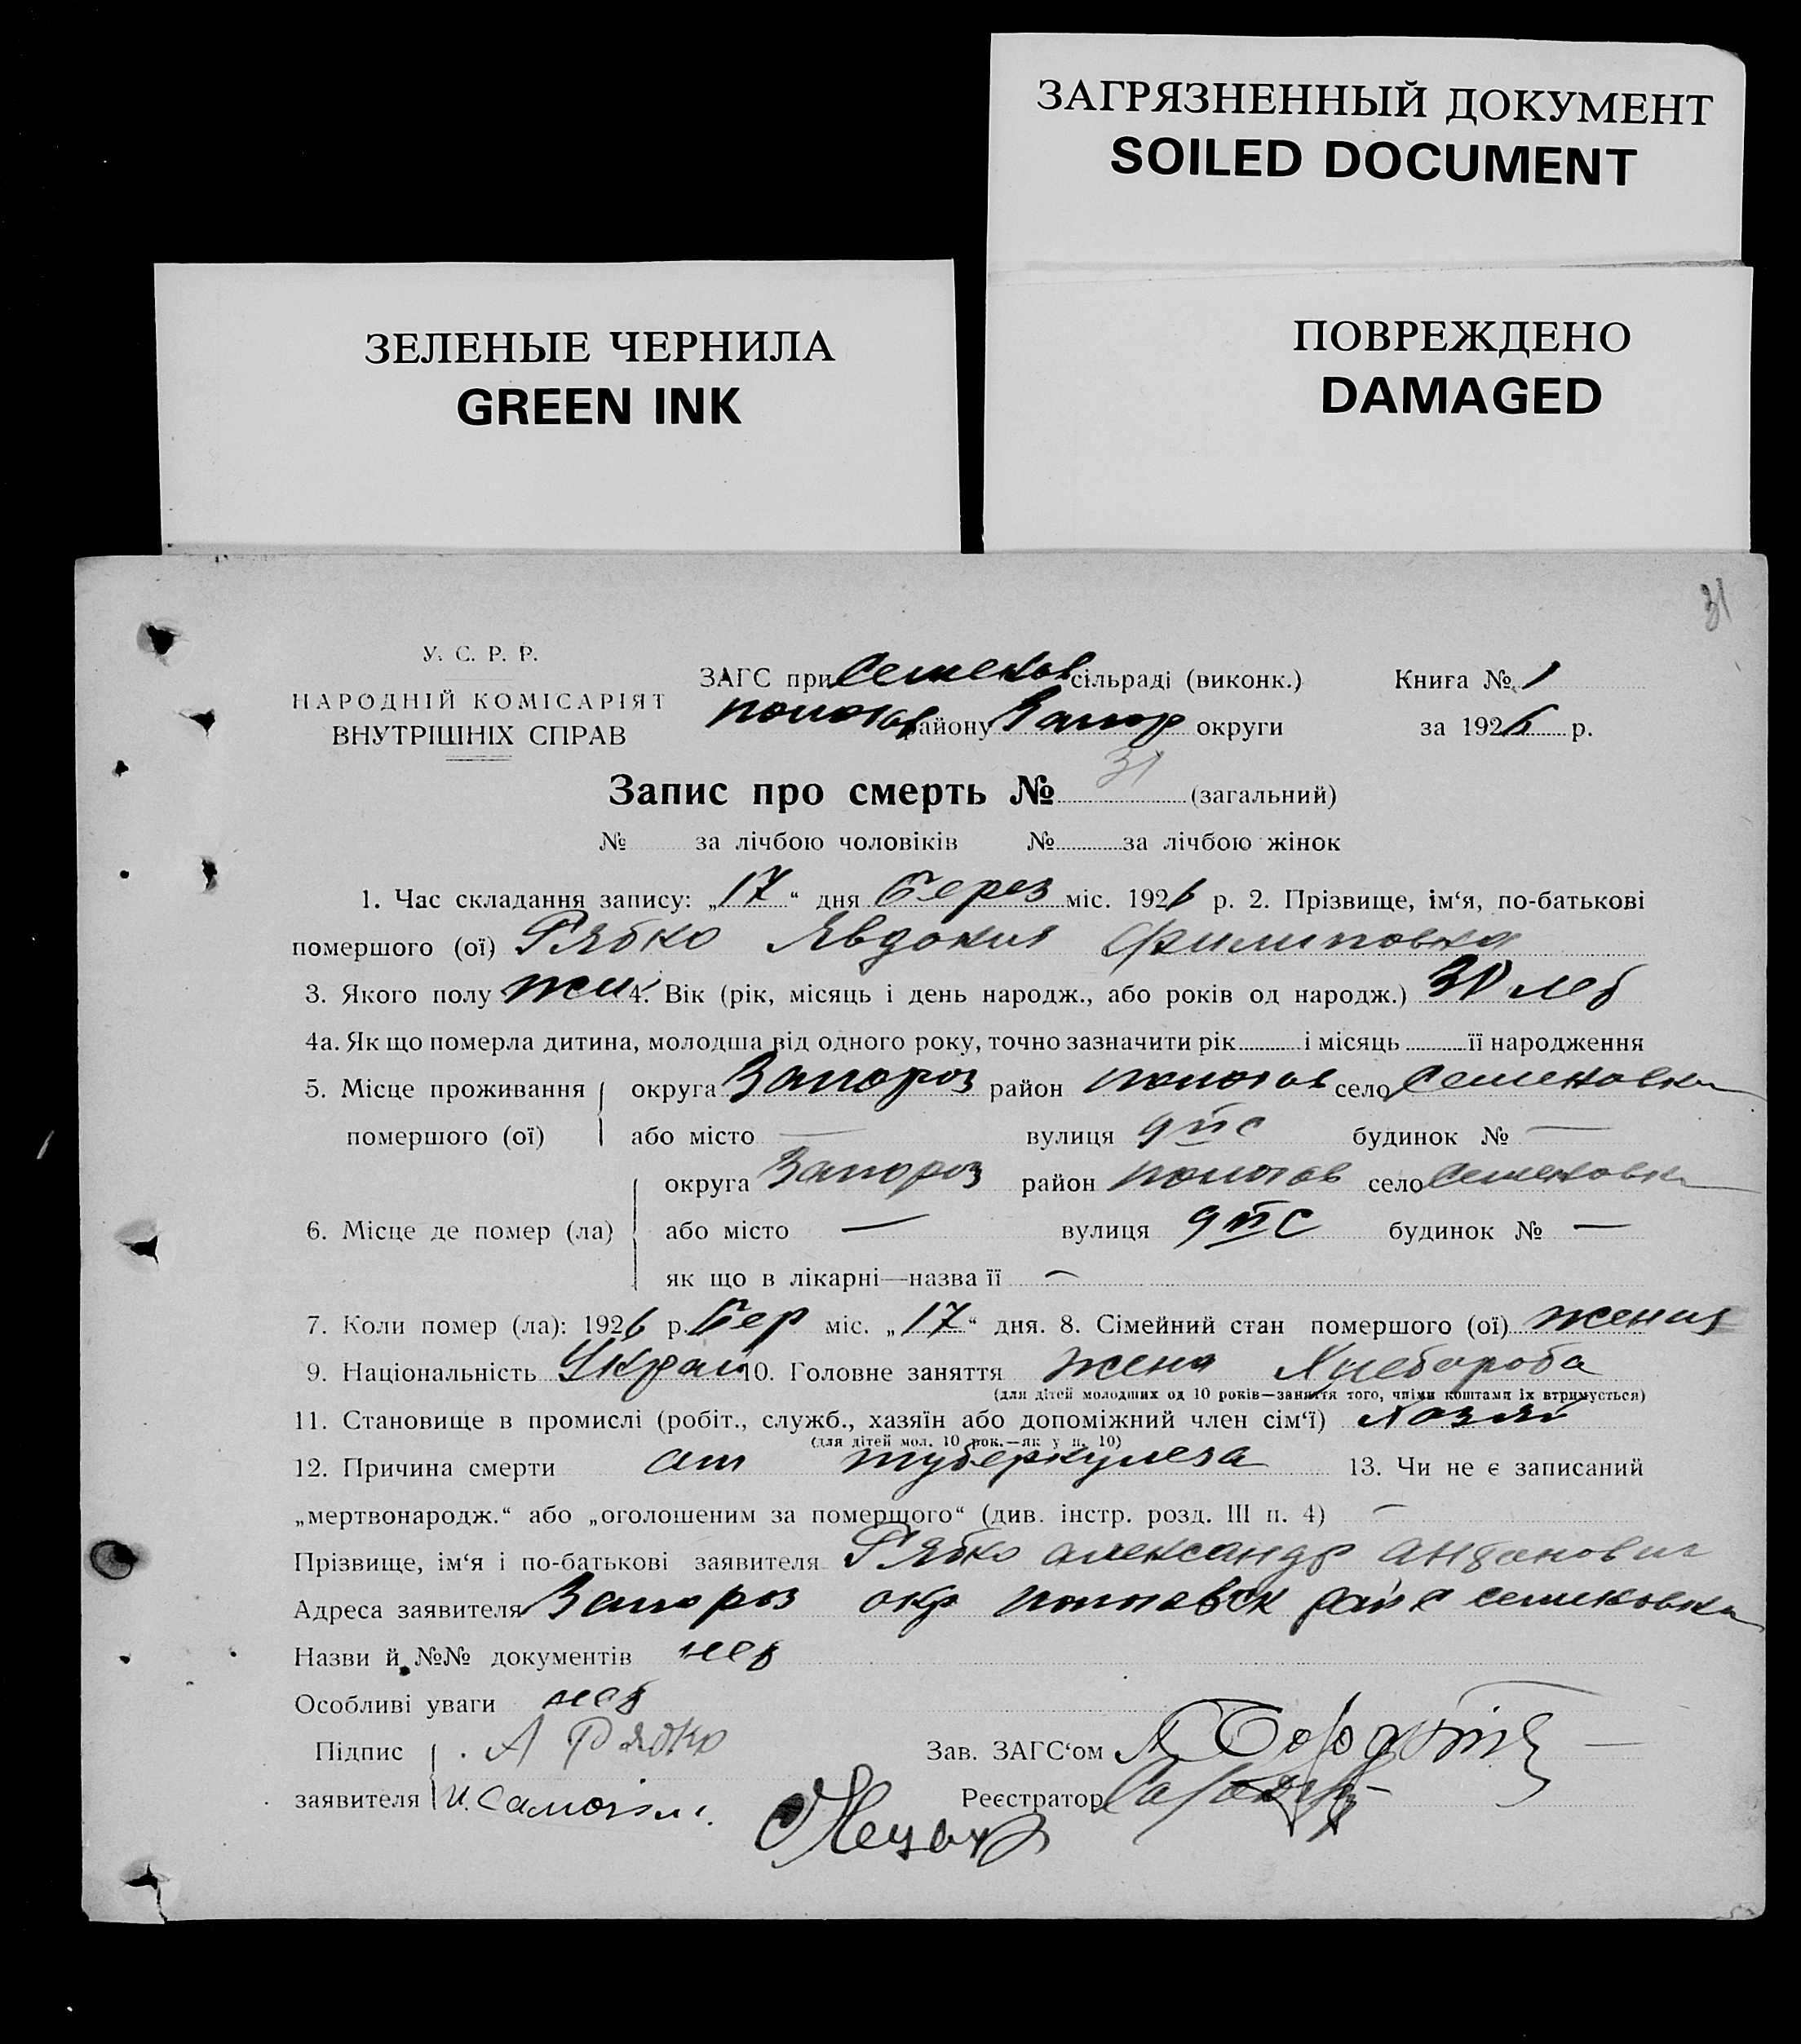 ЗАГРЯЗНЕННЫЙ ДОКУМЕНТ
SOILED DOCUMENT
ЗЕЛЕНЫЕ ЧЕРНИЛА
GREEN INK
ПОВРЕЖДЕНО
DAMAGED
31
У. С. Р. Р.
НАРОДНІЙ КОМІСАРІЯТ
ВНУТРІШНІХ СПРАВ
ЗАГС при Семенов сільраді (виконк.) Книга № 1
пологов району Запор округи за 1926 р.
Запис про смерть № 31 (загальний)
№ за лічбою чоловіків № за лічбою жінок
1. Час складання запису: „17“ дня берез міс. 1926 р. 2. Прізвище, ім‘я, по-батькові
помершого (ої) Рябко Явдокия Филиповна
3. Якого полу жен 4. Вік (рік, місяць і день народж., або років од народж.) 30 лет
4а. Як що померла дитина, молодша від одного року, точно зазначити рік і місяць її народження
5. Місце проживання округа Запороз район пологов село Семеновка
помершого (ої) або місто — вулиця будинок № —
округа Запороз район пологов село Семеновка
6. Місце де помер (ла) або місто — вулиця будинок № —
як що в лікарні—назва її —
7. Коли помер (ла): 1926 р. бер міс. „17“ дня. 8. Сімейний стан помершого (ої)
9. Національність Украи 10. Головне заняття жена Хлебороба
(для дітей молодших од 10 років—заняття того, чиїми коштами їх втримується)
11. Становище в промислі (робіт., служб., хазяїн або допоміжний член сім‘ї) хозяй
(для дітей мол. 10 рок.—як у п. 10)
12. Причина смерти от туберкулеза 13. Чи не є записаний
„мертвонародж.“ або „оголошеним за помершого“ (див. інстр. розд. III п. 4) —
Прізвище, ім‘я і по-батькові заявителя Рябко александр антанович
Адреса заявителя Запороз окр пологовск рай с семеновка
Назви й №№ документів нет
Особливі уваги нет
Підпис А Рябко Зав. ЗАГС‘ом
заявителя Реєстратор